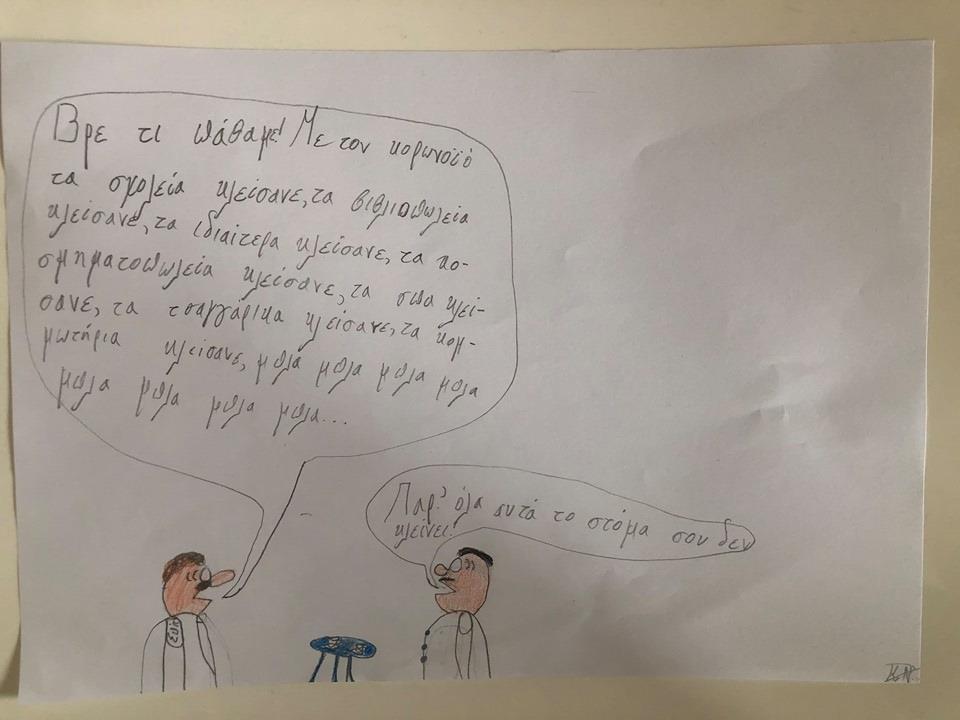 Βρε τι πάθαμε! Με τον κορωνοϊό
τα σχολεία κλείσανε, τα βιβλιοπωλεία
κλείσανε, τα ιδιαίτερα κλείσανε, τα κο-
σμηματοπωλεία κλείσανε, τα σπα κλεί-
σανε, τα τσαγγάρικα κλείσανε, τα κομ-
μωτήρια κλείσανε, μπλα μπλα μπλα μπλα
μπλα μπλα μπλα μπλα...
Παρ' όλα αυτά το στόμα σου δεν
κλείνει!